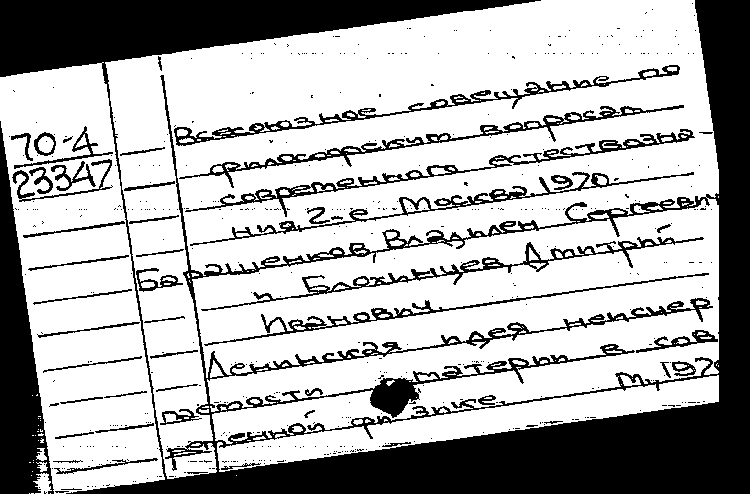 70-4
23347
Всесоюзное совещание по
философским вопросам
современного естествозна-
ния, 2-е Москва. 1970.
Баращенков, Владилен Сергеевич
и Блохинцев, Дмитрий
Иванович.
Ленинская идея неисчер-
паемости материи в сов-
ременной физике. М., 1970